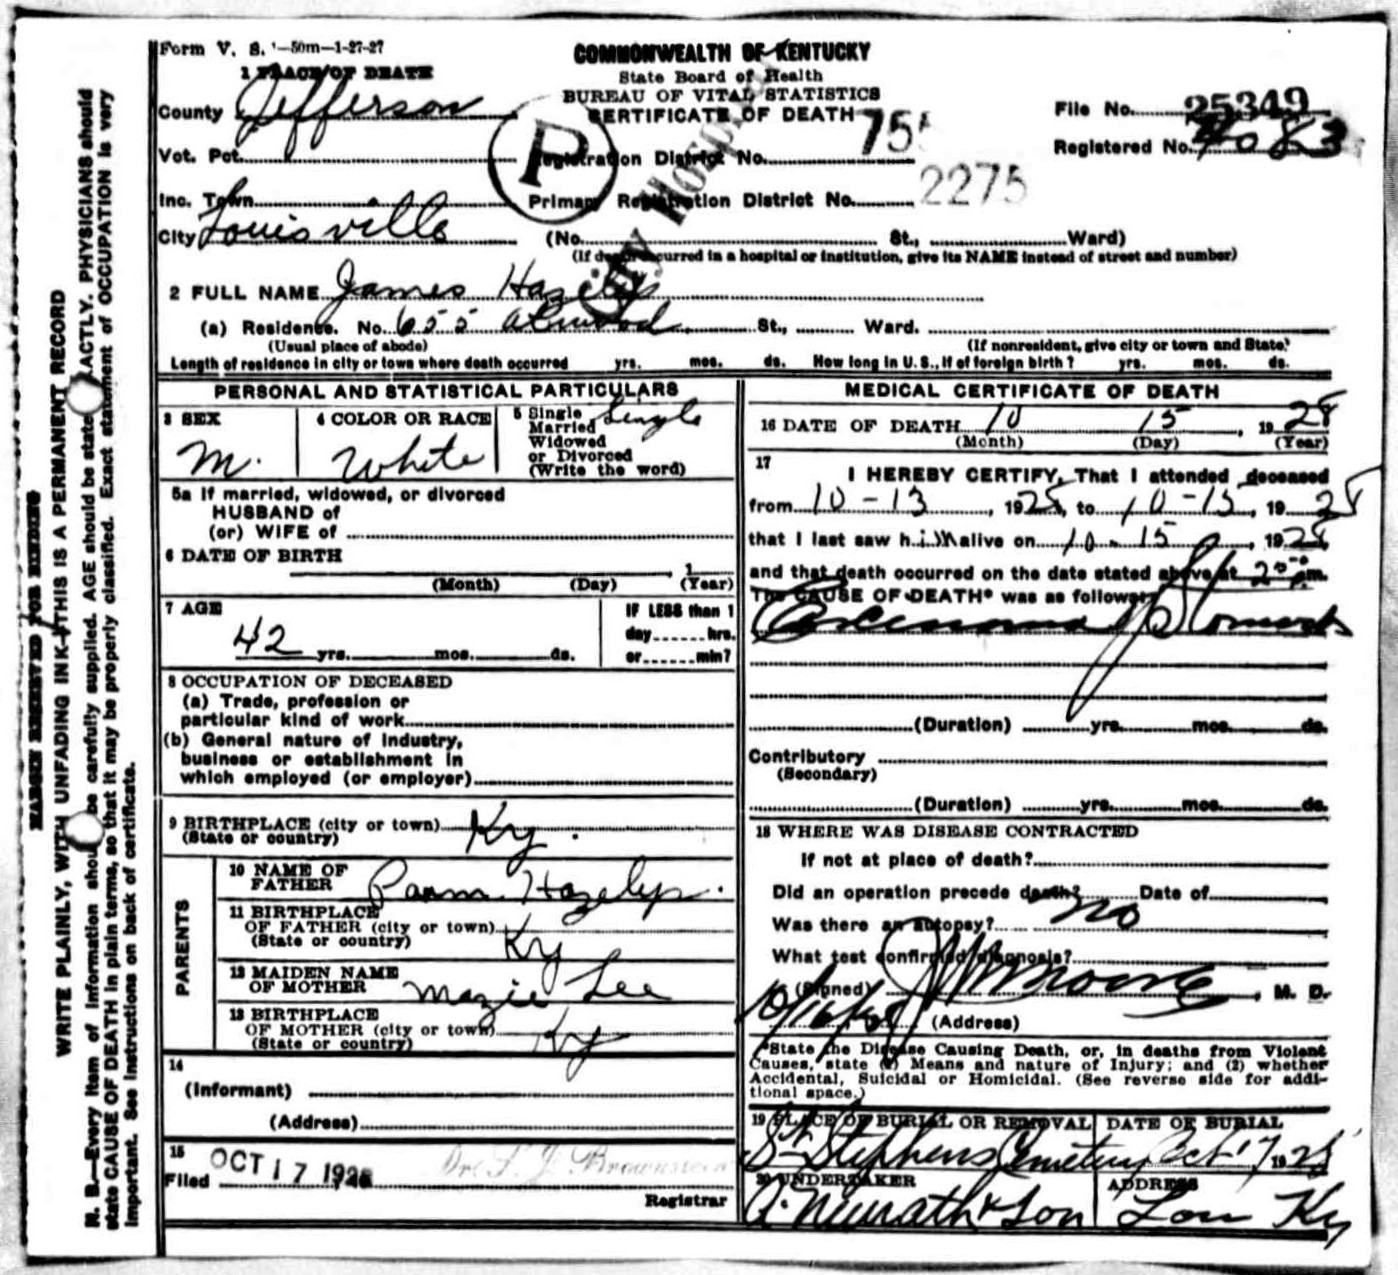 Form V. S. 1—50m—1-27-27
COMMONWEALTH OF KENTUCKY
State Board of Health
BUREAU OF VITAL STATISTICS
CERTIFICATE OF DEATH
1 PLACE OF DEATH
County Jefferson
Vot. Pct.
Inc. Town
City Louisville
P
City Hospital
File No. 25349
Registered No. 4083
Registration District No. 755
Primary Registration District No. 2275
(No. St., Ward)
(If death occurred in a hospital or institution, give its NAME instead of street and number)
2 FULL NAME James Hazelip
(a) Residence. No. 655 Atwood St., Ward.
(Usual place of abode) (If nonresident, give city or town and State)
Length of residence in city or town where death occurred yrs. mos. ds. How long in U. S., if of foreign birth? yrs. mos. ds.
PERSONAL AND STATISTICAL PARTICULARS
3 SEX
M.
4 COLOR OR RACE
White
5 Single
Married
Widowed
or Divorced
(Write the word)
Single
5a If married, widowed, or divorced
HUSBAND of
(or) WIFE of
6 DATE OF BIRTH
, 1
(Month) (Day) (Year)
7 AGE
42 yrs. mos. ds.
IF LESS than 1
day hrs.
or min?
8 OCCUPATION OF DECEASED
(a) Trade, profession or
particular kind of work
(b) General nature of industry,
business or establishment in
which employed (or employer)
9 BIRTHPLACE (city or town) Ky.
(State or country)
PARENTS
10 NAME OF
FATHER Hazelip.
11 BIRTHPLACE
OF FATHER (city or town)
(State or country) Ky
12 MAIDEN NAME
OF MOTHER Mazie Lee
13 BIRTHPLACE
OF MOTHER (city or town)
(State or country) Ky
14
(Informant)
(Address)
15
Filed OCT 17 1928 Dr. L. J. Brownstein
Registrar
MEDICAL CERTIFICATE OF DEATH
16 DATE OF DEATH 10 15, 1928
(Month) (Day) (Year)
17
I HEREBY CERTIFY, That I attended deceased
from 10-13, 1928, to 10-15, 1928
that I last saw him alive on 10-15, 1928,
and that death occurred on the date stated above at 2 m.
The CAUSE OF DEATH* was as follows:
Carcinoma of Stomach
(Duration) yrs. mos. ds.
Contributory
(Secondary)
(Duration) yrs. mos. ds.
18 WHERE WAS DISEASE CONTRACTED
If not at place of death?
Did an operation precede death? Date of
Was there an autopsy? no
What test confirmed diagnosis?
(Signed) Moore, M. D.
10/16/28 (Address)
*State the Disease Causing Death, or, in deaths from Violent
Causes, state (1) Means and nature of Injury; and (2) whether
Accidental, Suicidal or Homicidal. (See reverse side for addi-
tional space.)
19 PLACE OF BURIAL OR REMOVAL
St. Stephens Cemetery
DATE OF BURIAL
Oct 17 1928
20 UNDERTAKER
A. Neurath & Son
ADDRESS
Lou Ky
MARGIN RESERVED FOR BINDING
WRITE PLAINLY, WITH UNFADING INK—THIS IS A PERMANENT RECORD
N. B.—Every item of information should be carefully supplied. AGE should be stated EXACTLY. PHYSICIANS should
state CAUSE OF DEATH in plain terms, so that it may be properly classified. Exact statement of OCCUPATION is very
important. See instructions on back of certificate.